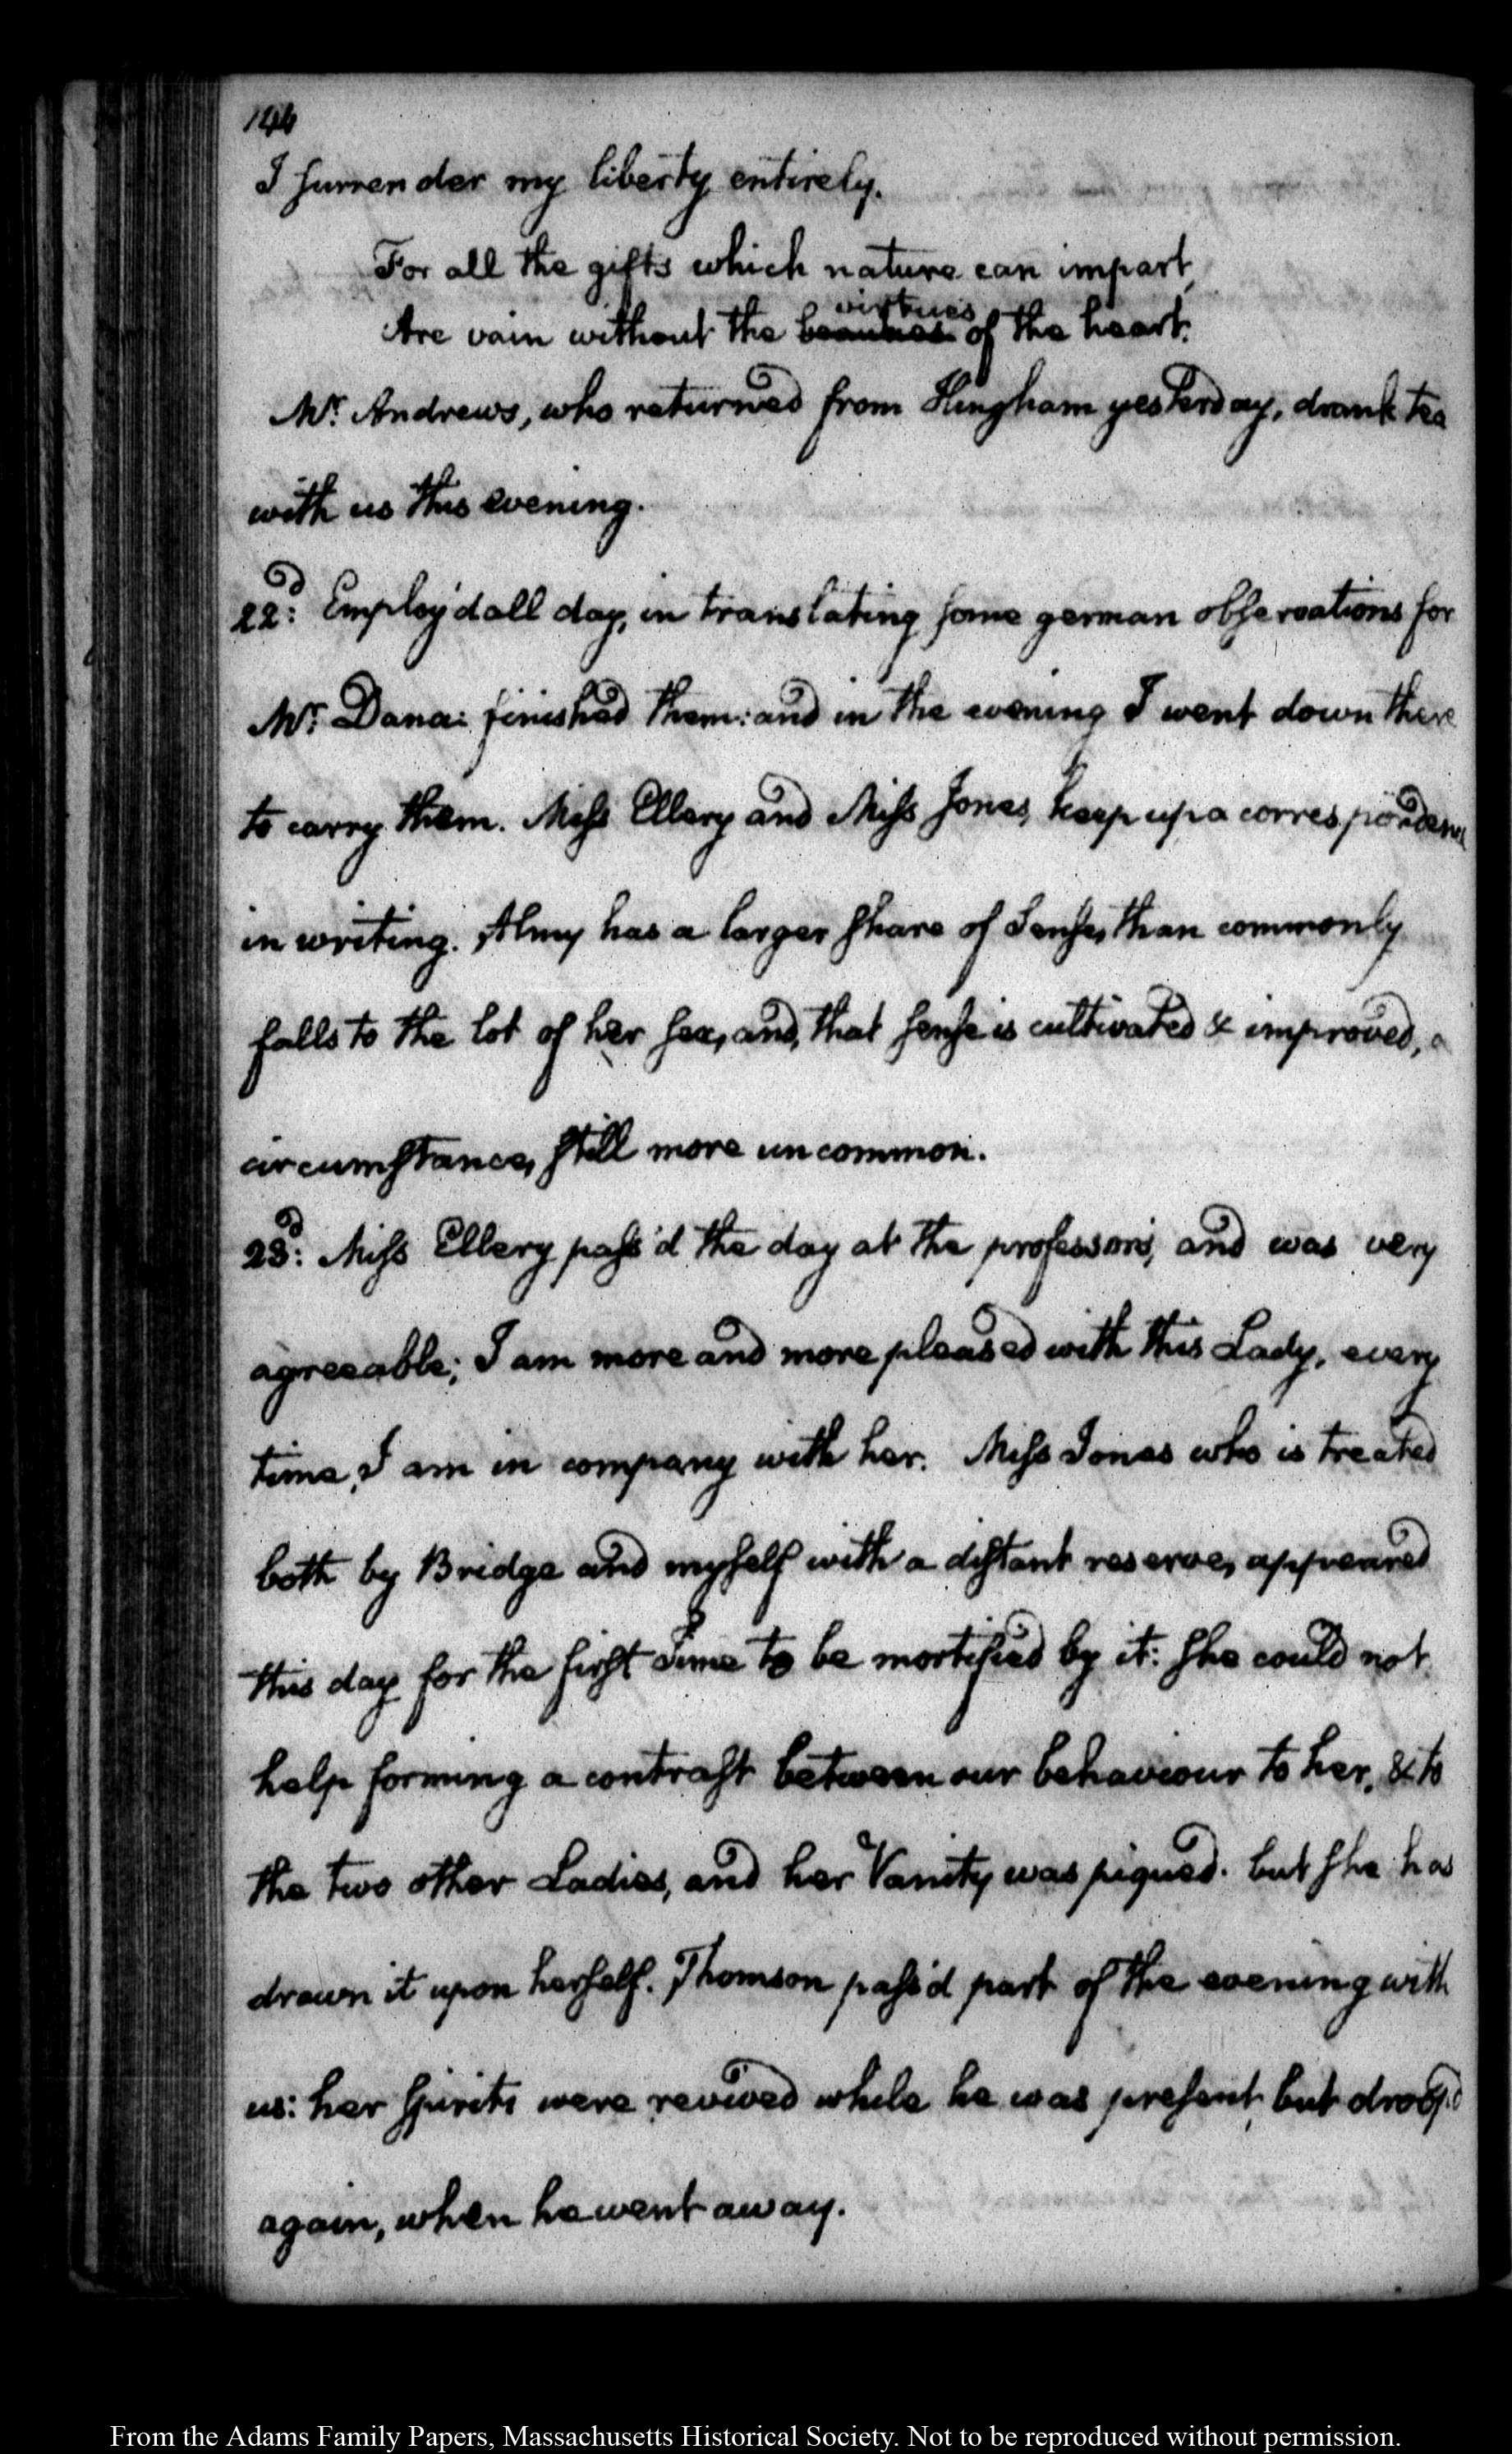 146
I surrender my liberty entirely.
For all the gifts which nature can impart,
virtues
Are vain without the beauties of the heart.
Mr. Andrews, who returned from Hingham yesterday, drank tea
with us this evening.
22d: Employ'd all day, in translating some german observations for
Mr. Dana: finished them: and in the evening I went down there
to carry them. Miss Ellery and Miss Jones, keep up a correspondence
in writing. Almy has a larger share of Sense, than commonly
falls to the lot of her sex, and, that sense is cultivated & improved, a
circumstance, still more uncommon.
23d: Miss Ellery pass'd the day at the professors, and was very
agreeable; I am more and more pleased with this Lady, every
time, I am in company with her. Miss Jones who is treated
both by Bridge and myself with a distant reserve, appeared
this day for the first Time to be mortified by it: she could not
help forming a contrast between our behaviour to her, & to
the two other Ladies, and her Vanity was piqued. but she has
drawn it upon herself. Thomson pass'd part of the evening with
us: her spirits were revived while he was present, but droop'd
again, when he went away.
From the Adams Family Papers, Massachusetts Historical Society. Not to be reproduced without permission.